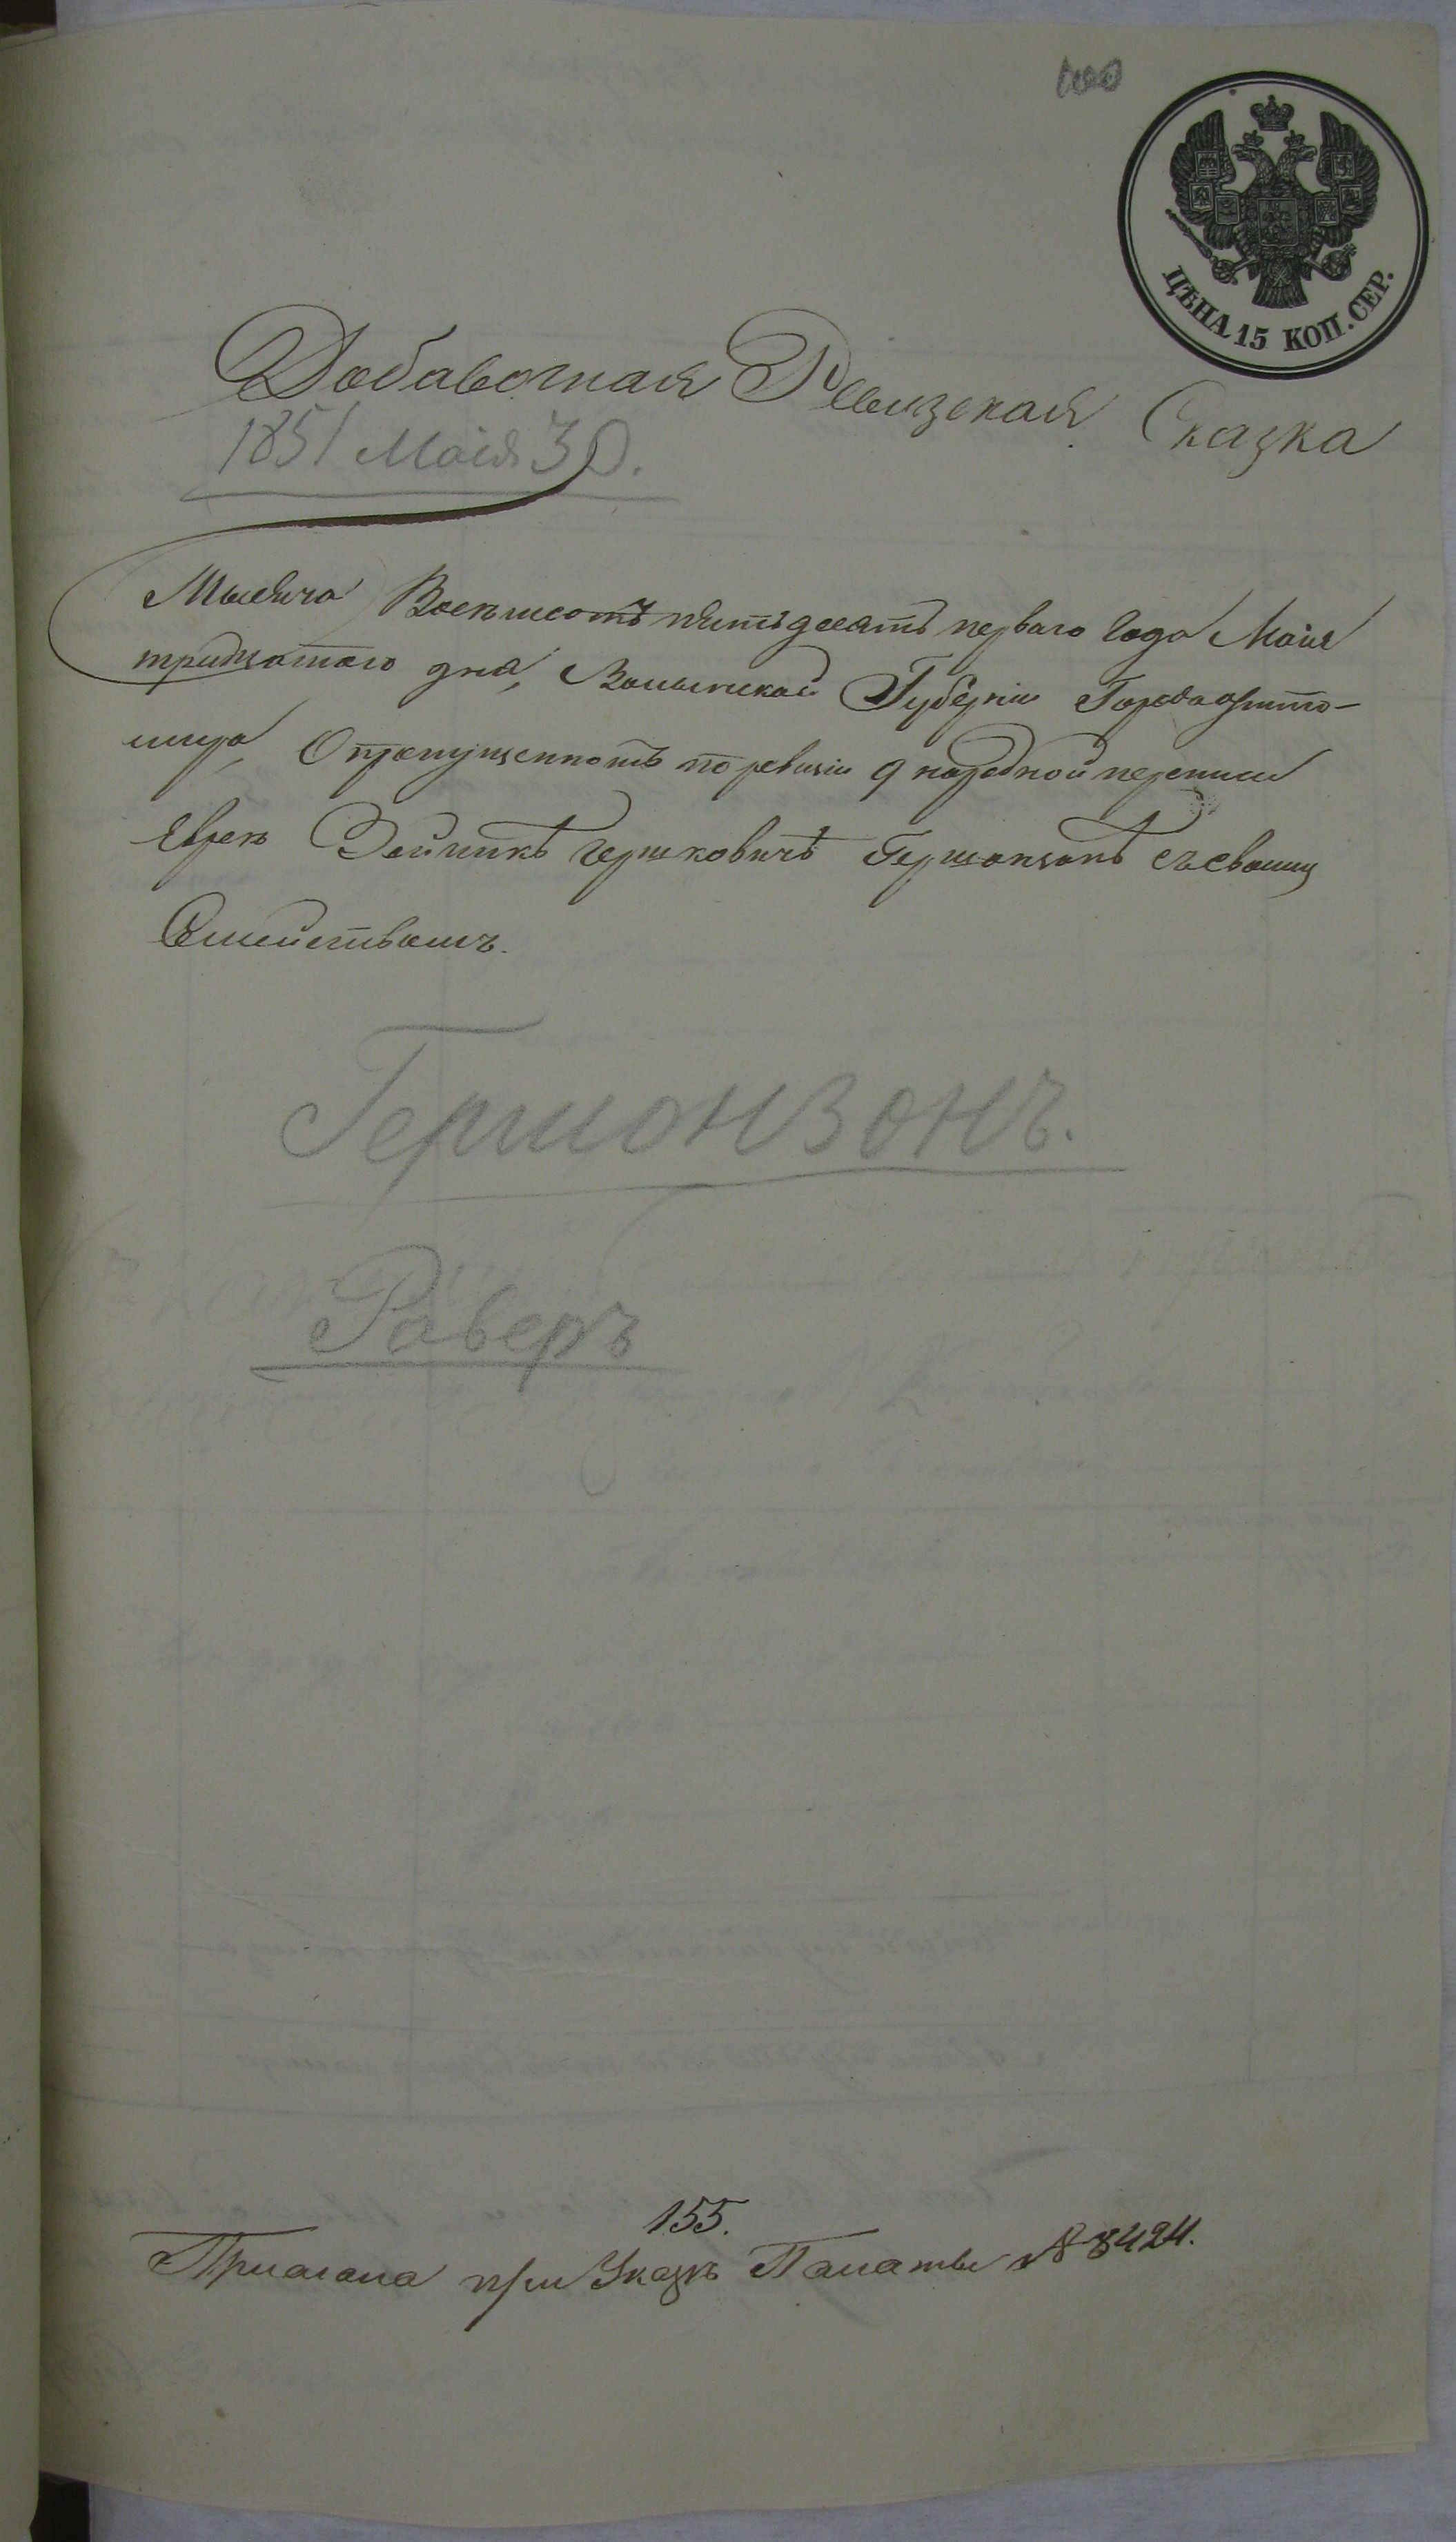 ЦѢНА 15 КОП. СЕР.
Добавочная Ревизская Сказка
1851 Маія 30.
Тысяча Восемьсотъ пятьдесятъ перваго Года Маія
тридцатаго дня, Волынской Губерніи Города Жито-
мира, О пропущенномъ по ревизіи 9 народной переписи
Еврею Зейликъ Гершковичъ Гершонзонъ съ своимъ
Семействомъ.
Гершонзонъ.
Раверъ
155.
при Указѣ Палаты № 8424.